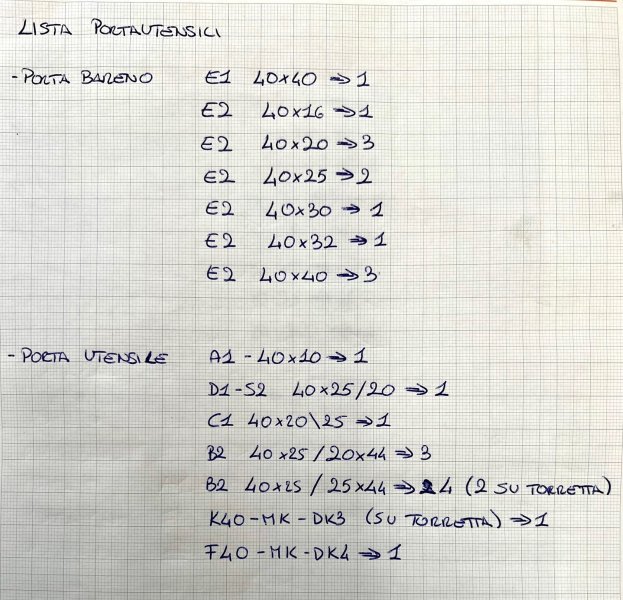 LISTA PORTAUTENSILI
- PORTA BARENO E1 40x40 => 1
E2 40x16 => 1
E2 40x20 => 3
E2 40x25 => 2
E2 40x30 => 1
E2 40x32 => 1
E2 40x40 => 3
- PORTA UTENSILE A1 - 40x10 => 1
D1-S2 40x25/20 => 1
C1 40x20\25 => 1
B2 40x25/20x44 => 3
B2 40x25/25x44 => 4 (2 SU TORRETTA)
K40-MK-DK3 (SU TORRETTA) => 1
F40-MK-DK4 => 1